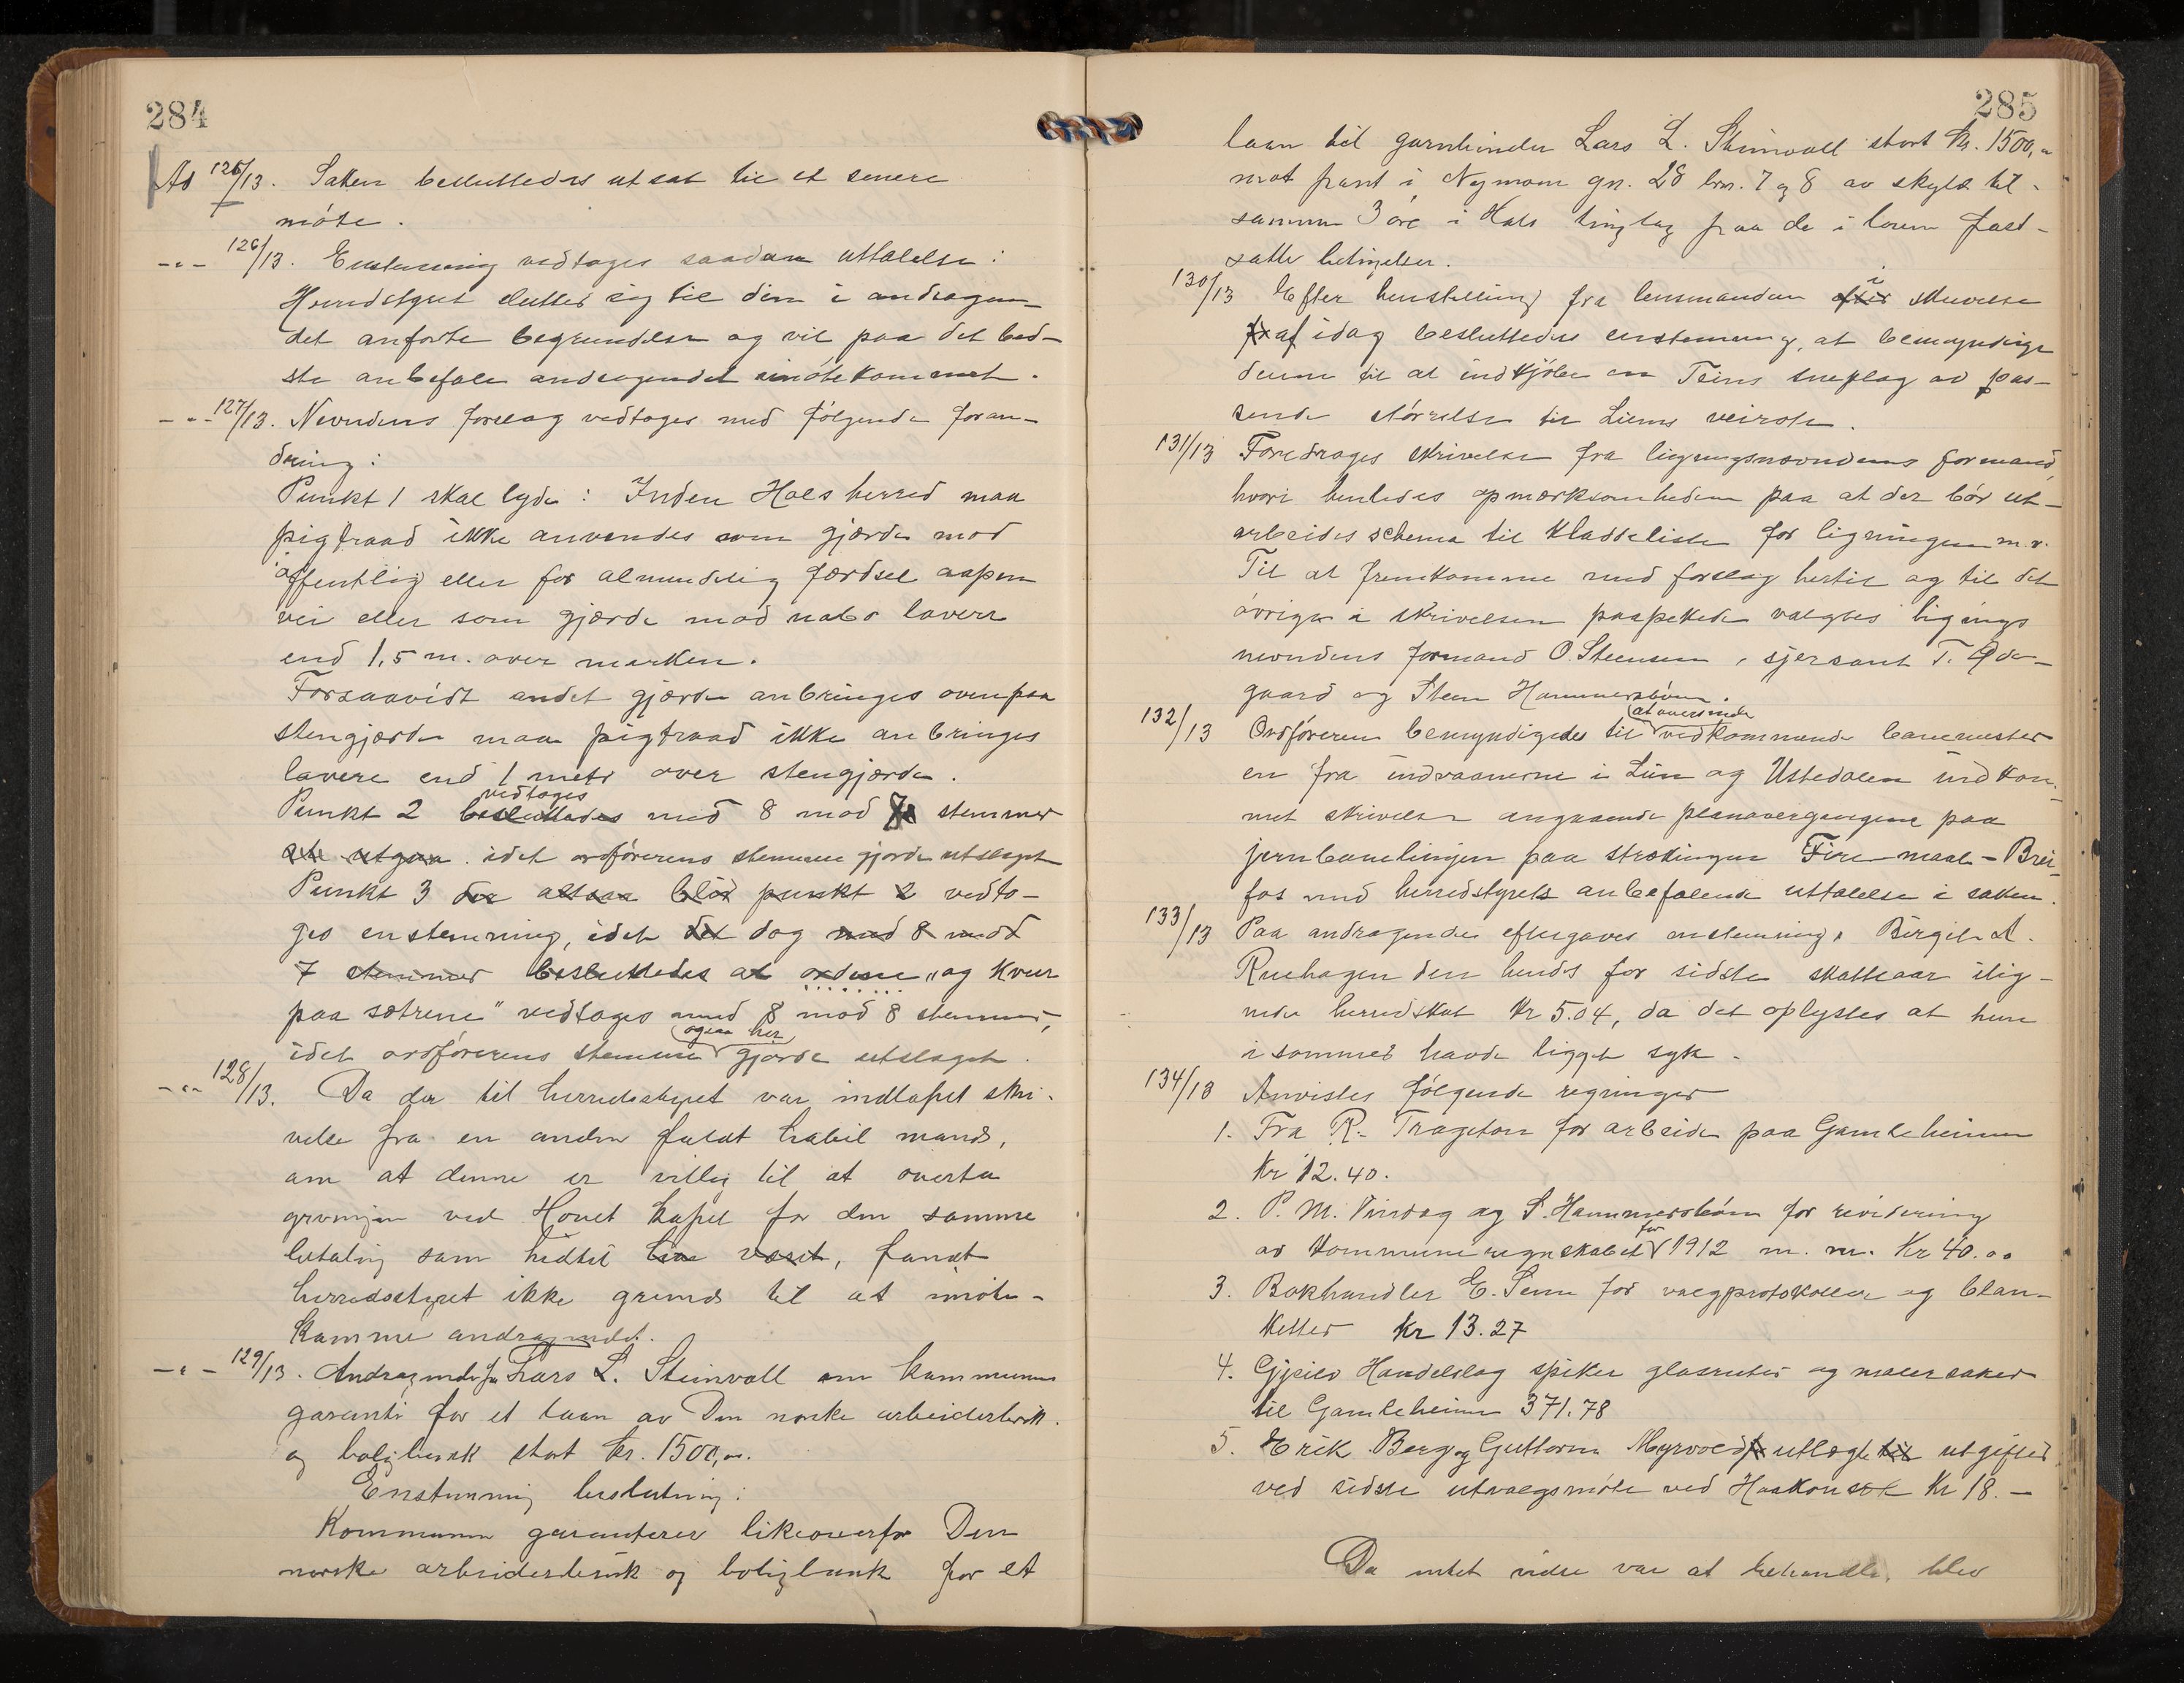 284
Ad 125/13. Saken besluttedes utsat til et senere
møte.
-"- 126/13. Enstemmig vedtages saadan uttalelse:
Herredstyret slutter sig til den i andragen-
det anførte begrundelse og vil paa det bed-
ste anbefale andragendet imøtekommet.
-"- 127/13. Nevndens forslag vedtages med følgende foran-
dring:
Punkt 1 skal lyde: Inden Hols herred maa
pigtraad ikke anvendes som gjærde mod
offentlig eller for almindelig færdsel aapen
vei eller som gjærde mod nabo lavere
end 1,5 m. over marken.
Forsaavidt andet gjærde anbringes ovenpaa
stengjærde maa pigtraad ikke anbringes
lavere end 1 meter over stengjærde.
Punkt 2 besluttedes vedtages med 8 mod stemmer
at utgaa. idet ordførerens stemme gjorde utslaget
Punkt 3 der altsaa blir punkt 2 vedto-
ges enstemmig, idet det dog med 8 mod
7 stemmer besluttedes at ordene "og kveer
paa sætrene" vedtages med 8 mod 8 stemmer,
idet ordførerens stemme ogsaa her gjorde utslaget.
-"- 128/13. Da der til herredsstyret var indløpet skri-
velse fra en anden fuldt habil mand,
om at denne er villig til at overta
gravningen ved Hovet kapel for den samme
betaling som hidtil har været, fandt
herredsstyret ikke grund til at imøte-
komme andragendet.
-"- 129/13. Andragende fra Lars L. Steinvoll om kommunens
garanti for et laan av Den norske arbeiderbruk
og boligbank stort kr. 1500,oo.
Enstemmig beslutning:
Kommunen garanterer likeoverfor Den
norske arbeiderbruk og boligbank for et
285
laan til gaardbruker Lars L. Steinvoll stort kr. 1500,oo
mot pant i Nymoen gn. 28 brn. 7 og 8 av skyld til-
sammen 3 øre i Hols tinglag paa de i loven fast-
satte betingelser.
130/13 Efter henstilling fra lensmanden efter i skrivelse
fra af idag besluttedes enstemmig, at bemyndige
denne til at indkjøpe en Teins sneplog av pas-
sende størrelse til Liens veirote.
131/13 Foredrages skrivelse fra ligningsnævndens formand
hvori henledes opmærksomheden paa at der bør ut-
arbeides schema til kladdeliste for ligningen m.v.
Til at fremkomme med forslag hertil og til det
øvrige i skrivelsen paapekede valgtes lignings
nevndens formand O. Steensen, sjersant T. Øde-
gaard og Sten Hammersbøen.
132/13 Ordføreren bemyndigedes til at oversende vedkommende banemester
en fra indvaanerne i Lien og Ustedalen indkom-
met skrivelse angaaende planovergangene paa
jernbanelinjen paa strækningen Firemaal - Brei-
fos med herredstyrets anbefalende uttalelse i saken.
133/13 Paa andragende eftergaves enstemmig Birgit A.
Ruehagen den hende for sidste skatteaar ilig-
nede herredskat Kr 5.04, da det oplystes at hun
i sommer havde ligget syk.
134/13 Anvistes følgende regninger
1. Fra R. Trageton for arbeide paa Gamleheimen
Kr 12.40.
2. P. M. Tindag og S. Hammersbøen for revidering
av kommuneregnskabet for 1912 m. m. Kr 40.oo
3. Bokhandler E. Senn for valgprotokoller og blan-
ketter kr 13.27
4. Gjeilo Handelslag spiker glasruter og malersaker
til Gamleheimen 371.78
5. Erik Berg og Guttorm Myrvold utlagte til utgifter
ved sidste utvalgsmøte ved Haakonset Kr 18.-
Da intet videre var at behandle, blev